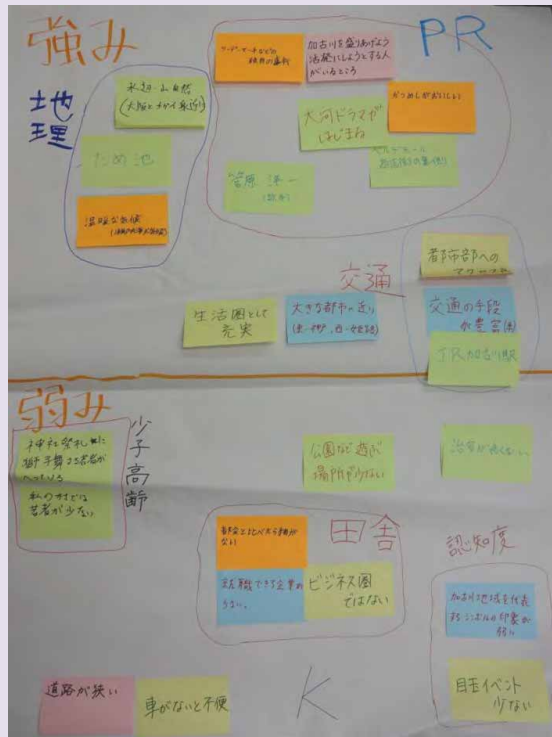 強み
PR
地理
水と緑の自然
ため池
温暖な気候
加古川を盛りあげよう
活発にしようとする人
がいるところ
かつめしがおいしい
大河ドラマが
はじまる
菅原洋一
(歌手)
交通
都市部への
アクセス
交通の手段
が豊富
JR加古川駅
生活圏として
充実
大きな都市に近い
弱み
少子高齢
神社祭礼
獅子舞する若者が
へっている
私の村では
若者が少ない
公園など遊ぶ
場所が少ない
治安が良くない
田舎
都会と比べたら
ない
就職できる企業が
少ない。
ビジネス圏
ではない
認知度
加古川地域を代表
するシンボルの印象が
弱い
目玉イベント
少ない
道路が狭い
車がないと不便
K